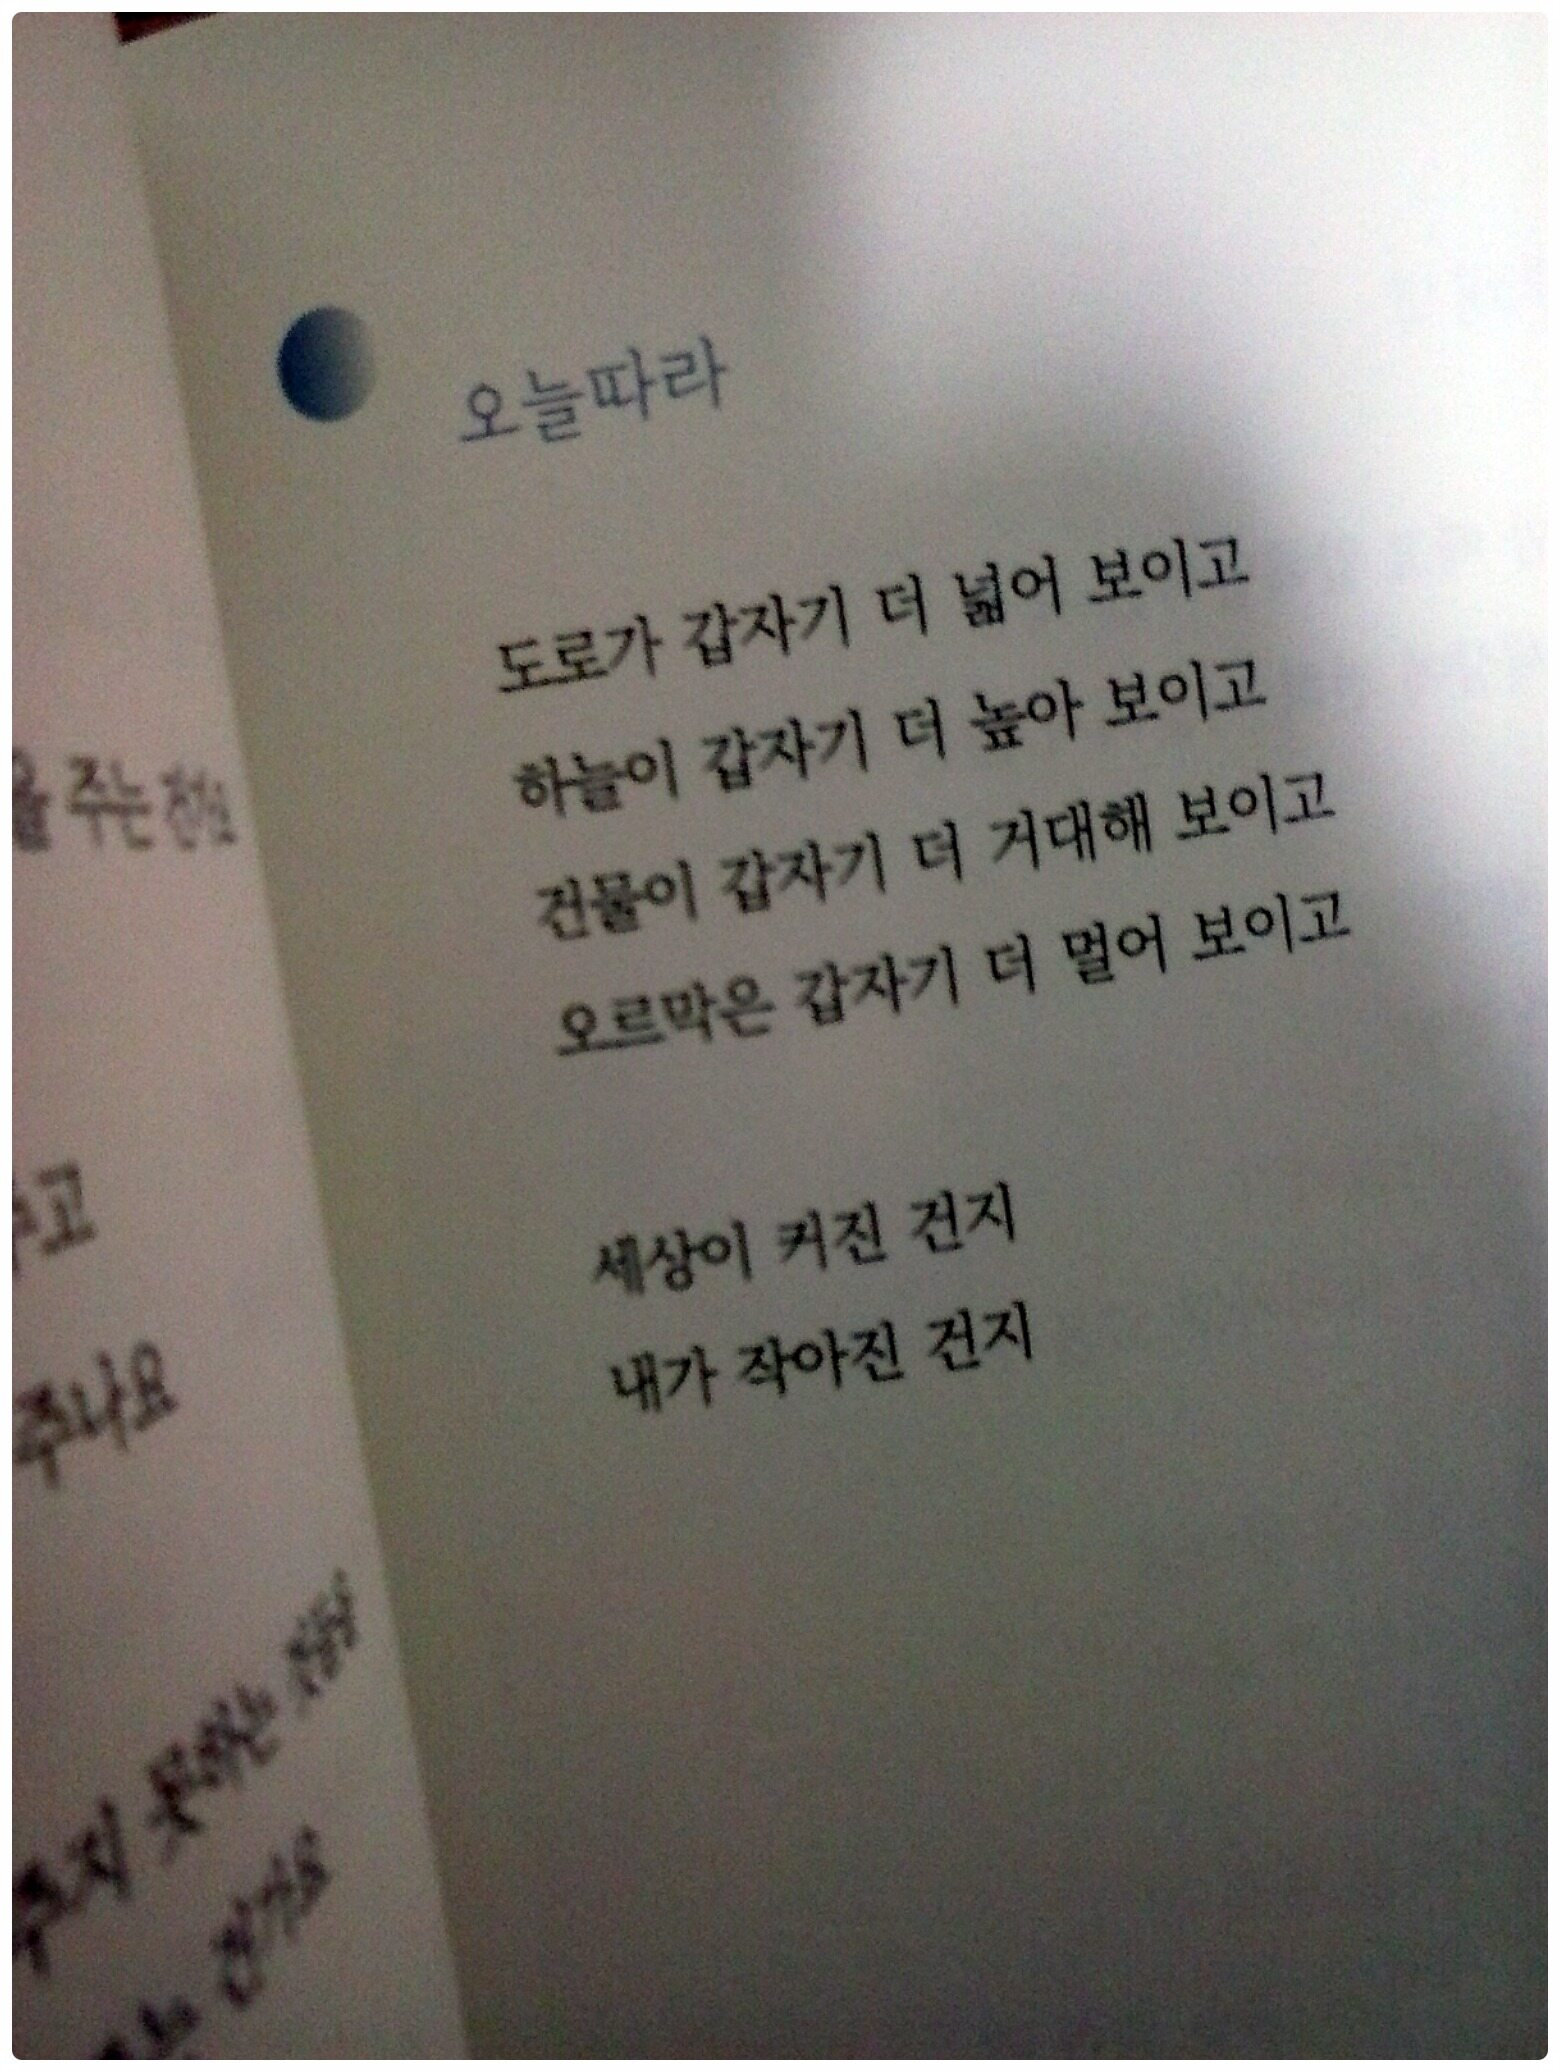 주는
주나요
주지 못하는
오늘따라
도로가 갑자기 더 넓어 보이고
하늘이 갑자기 더 높아 보이고
건물이 갑자기 더 거대해 보이고
오르막은 갑자기 더 멀어 보이고
세상이 커진 건지
내가 작아진 건지